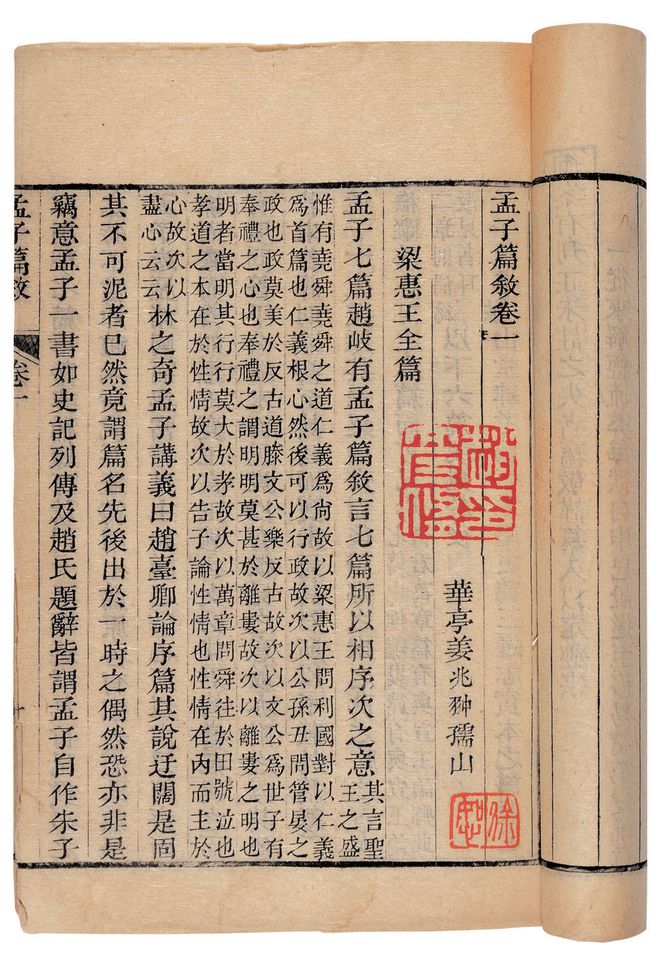 孟子篇敘卷一
梁惠王全篇
華亭姜兆翀孺山
徐恕
孟子七篇趙岐有孟子篇敘言七篇所以相序次之意其言聖
王之盛
惟有堯舜堯舜之道仁義爲尙故以梁惠王問利國對以仁義
爲首篇也仁義根心然後可以行政故次以公孫丑問管晏之
政也政莫美於反古道滕文公樂反古故次以文公爲世子有
奉禮之心也奉禮之謂明明莫甚於離婁故次以離婁之明也
明者當明其行行莫大於孝故次以萬章問舜往於田號泣也
孝道之本在於性情故次以告子論性情也性情在內而主於
心故次以
盡心云云林之奇孟子講義曰趙臺卿論序篇其說迂闊是固
其不可泥者已然竟謂篇名先後出於一時之偶然恐亦非是
竊意孟子一書如史記列傳及趙氏題辭皆謂孟子自作朱子
孟子篇敘 卷一